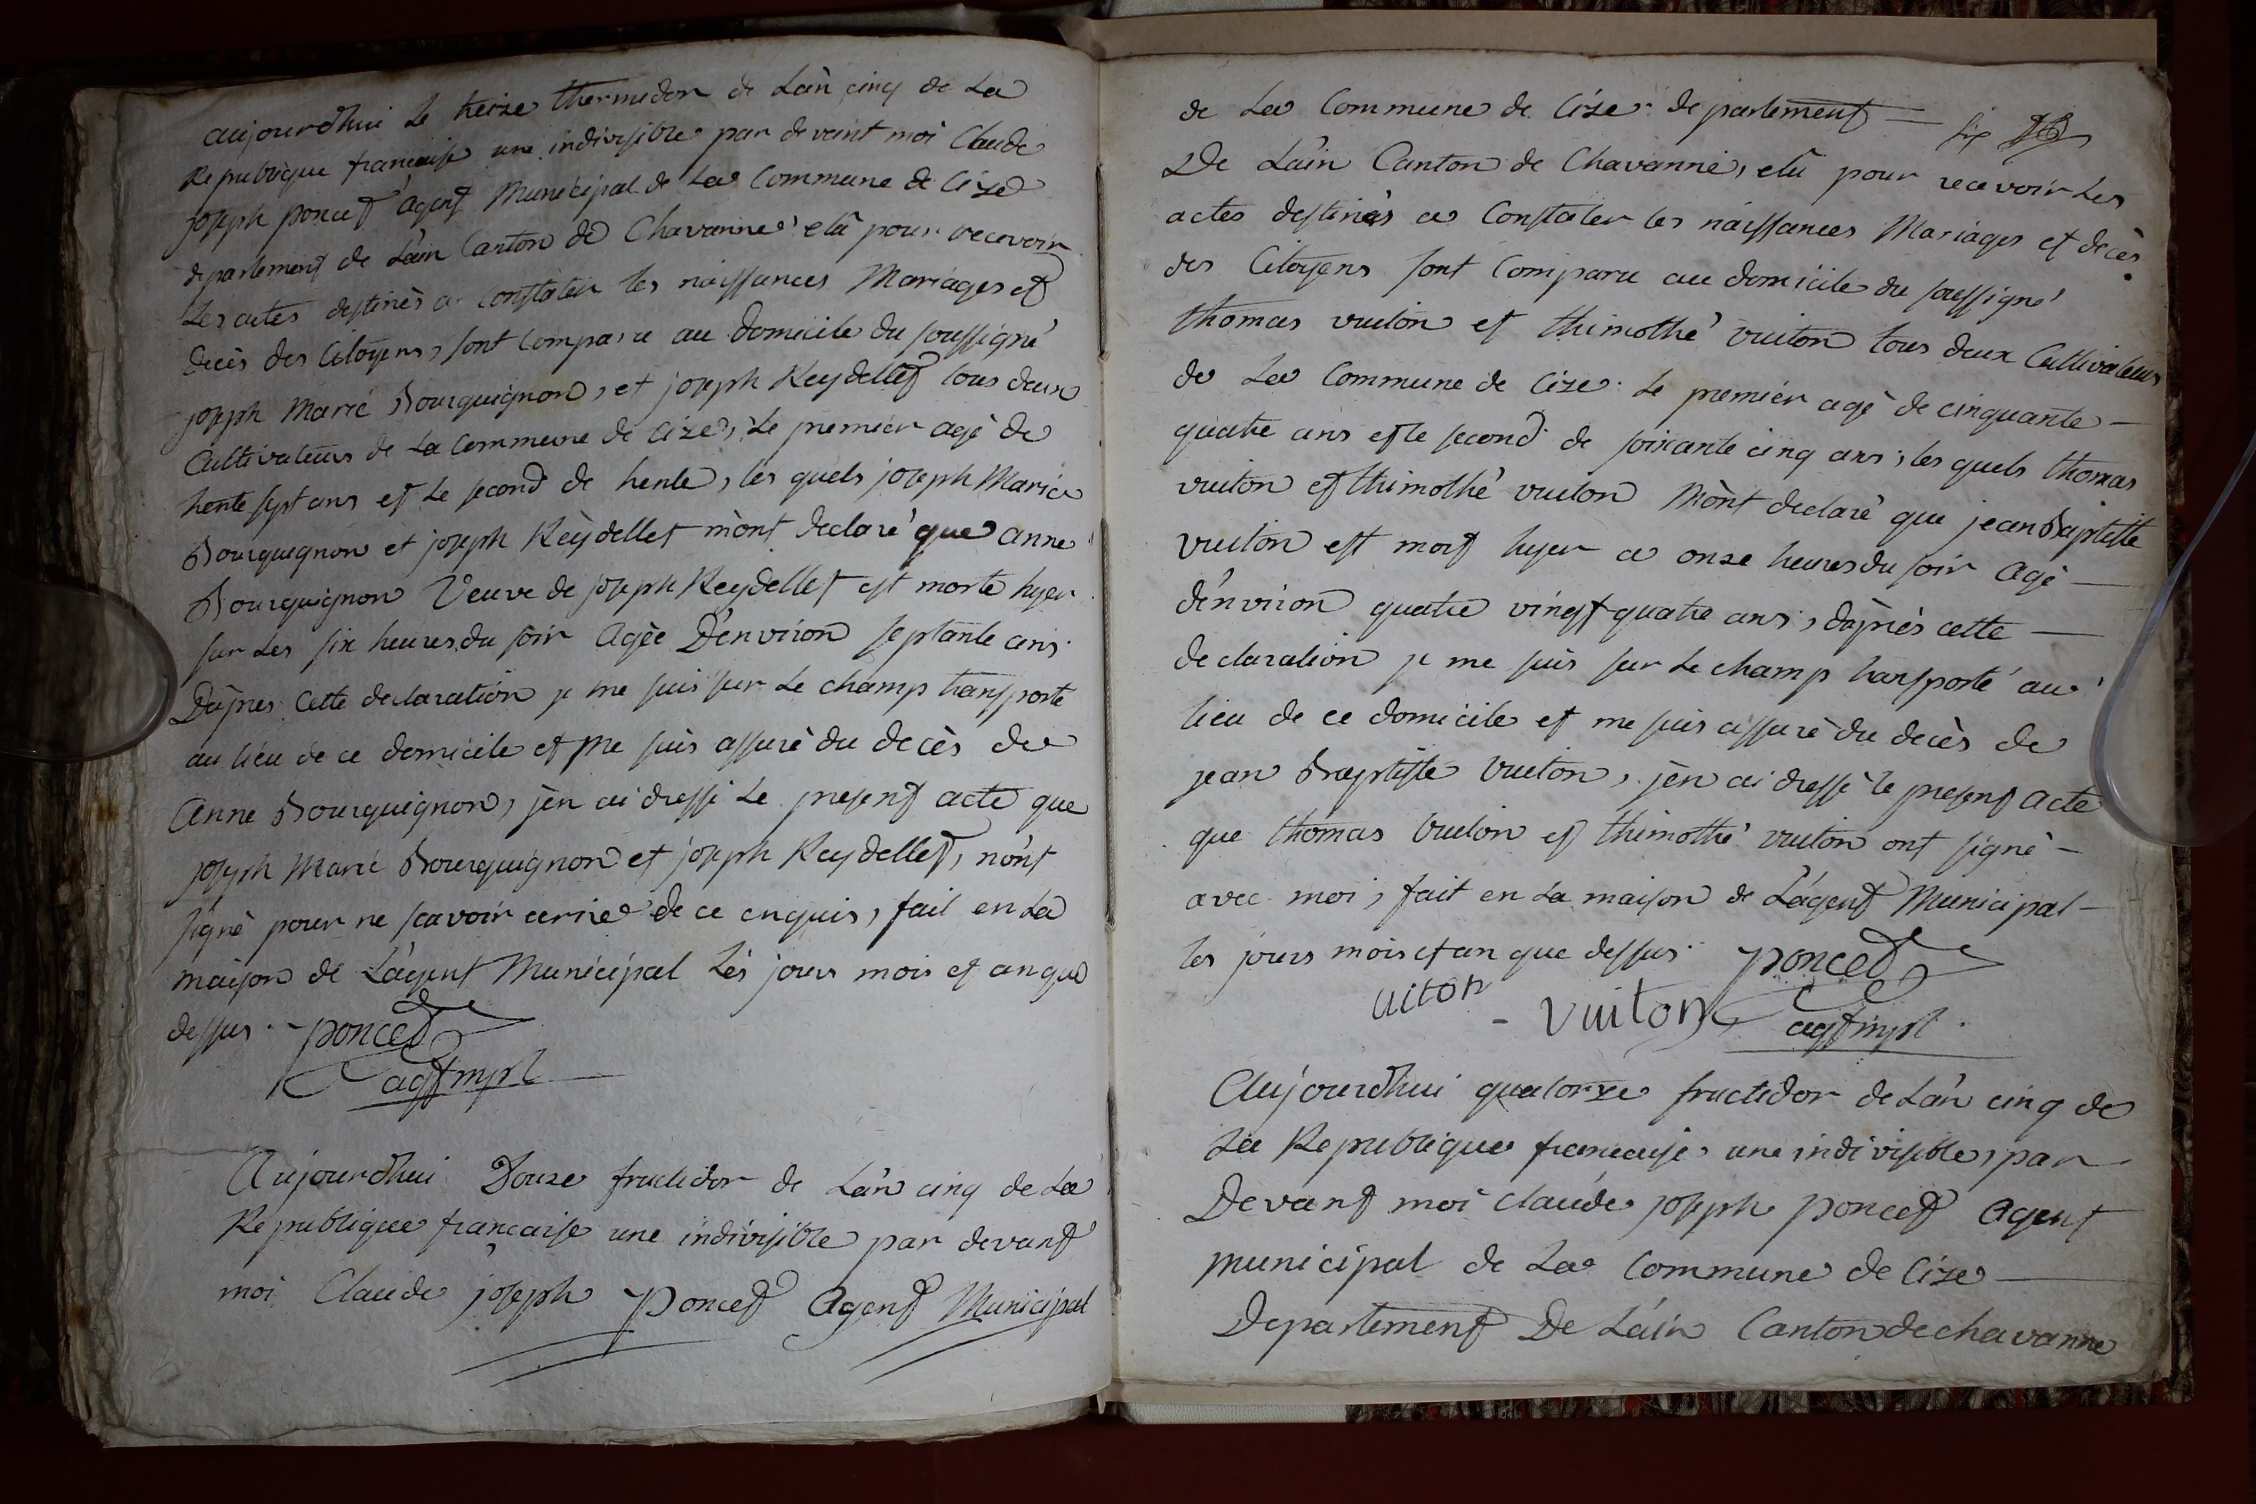 aujourdhui le treize thermidor de Lan cinq de La
Republique francaise une indivisible par devant moi Claude
joseph poncet agent Municipal de La Commune de Cize
departement de L'ain Canton de Chavanne elû pour recevoir
Les actes destinès a constater les naissances Mariages et
decès des Citoyens, sont comparu au domicile du soussigné
joseph Marie Bourguignon, et joseph Reydellet tous deux
Cultivateurs de La Commune de Cize, Le premier agé de
trente sept ans et Le second de trente, les quels joseph Marie
Bourguignon et joseph Reydellet m'ont declaré que anne
Bourguignon Veuve de joseph Reydellet est morte hyer
sur Les six heures du soir Agèe D'environ septante ans.
Daprès Cette declaration je me suis sur Le champ transporte
au lieu de ce domicile et me suis assuré du decès de
Anne Bourguignon, j'en ai dressé Le present acte que
joseph Marie Bourguignon et joseph Reydellet, n'ont
signé pour ne scavoir ecrire de ce enquis, fait en La
maison de L'agent Municipal Les jours mois et an que
dessus. - poncet
agt mpl
Aujourdhui Douze fructidor de L'an cinq de La
Republique francaise une indivisible par devant
moi Claude joseph Poncet Agent Municipal
six
de La Commune de Cize departement
De L'ain Canton de Chavanne, elû pour recevoir Les
actes destinés a Constater les naissances Mariages et decès
des Citoyens sont Comparu au domicile du soussigné
thomas vuiton et thimothé vuiton tous deux Cultivateurs
de La Commune de Cize. Le premier agé de cinquante
quatre ans et le second de soixante cinq ans, les quels thomas
vuiton et thimothé vuiton M'ont declaré que jean Baptiste
vuiton est mort hyer a onze heures du soir Agé
d'environ quatre vingt quatre ans, d'après cette
declaration je me suis sur Le champ transporté au
lieu de ce domicile et me suis assuré du decès de
jean Baptiste vuiton, j'en ai dressé le present acte
que thomas vuiton et thimothé vuiton ont signé
avec moi, fait en La maison de L'agent Municipal
les jours mois et an que dessus. poncet
uiton - vuiton agt mpl.
Aujourdhui quatorze fructidor de L'an cinq de
La Republique francaise, une indivisible, par
Devant moi claude joseph poncet Agent
municipal de La Commune de Cize
Departement De L'ain Canton de chavanne